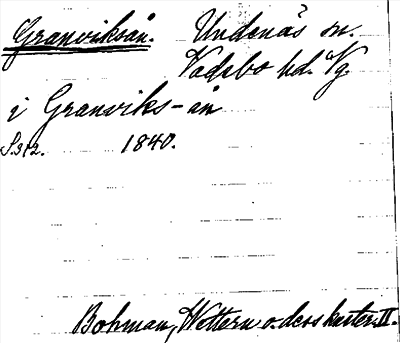 Granviksån. Undenäs sn.
Vadsbo hd. Vg.
i Granviks-ån
S.312. 1840.
Bohman, Wettern o. dess kuster. II.